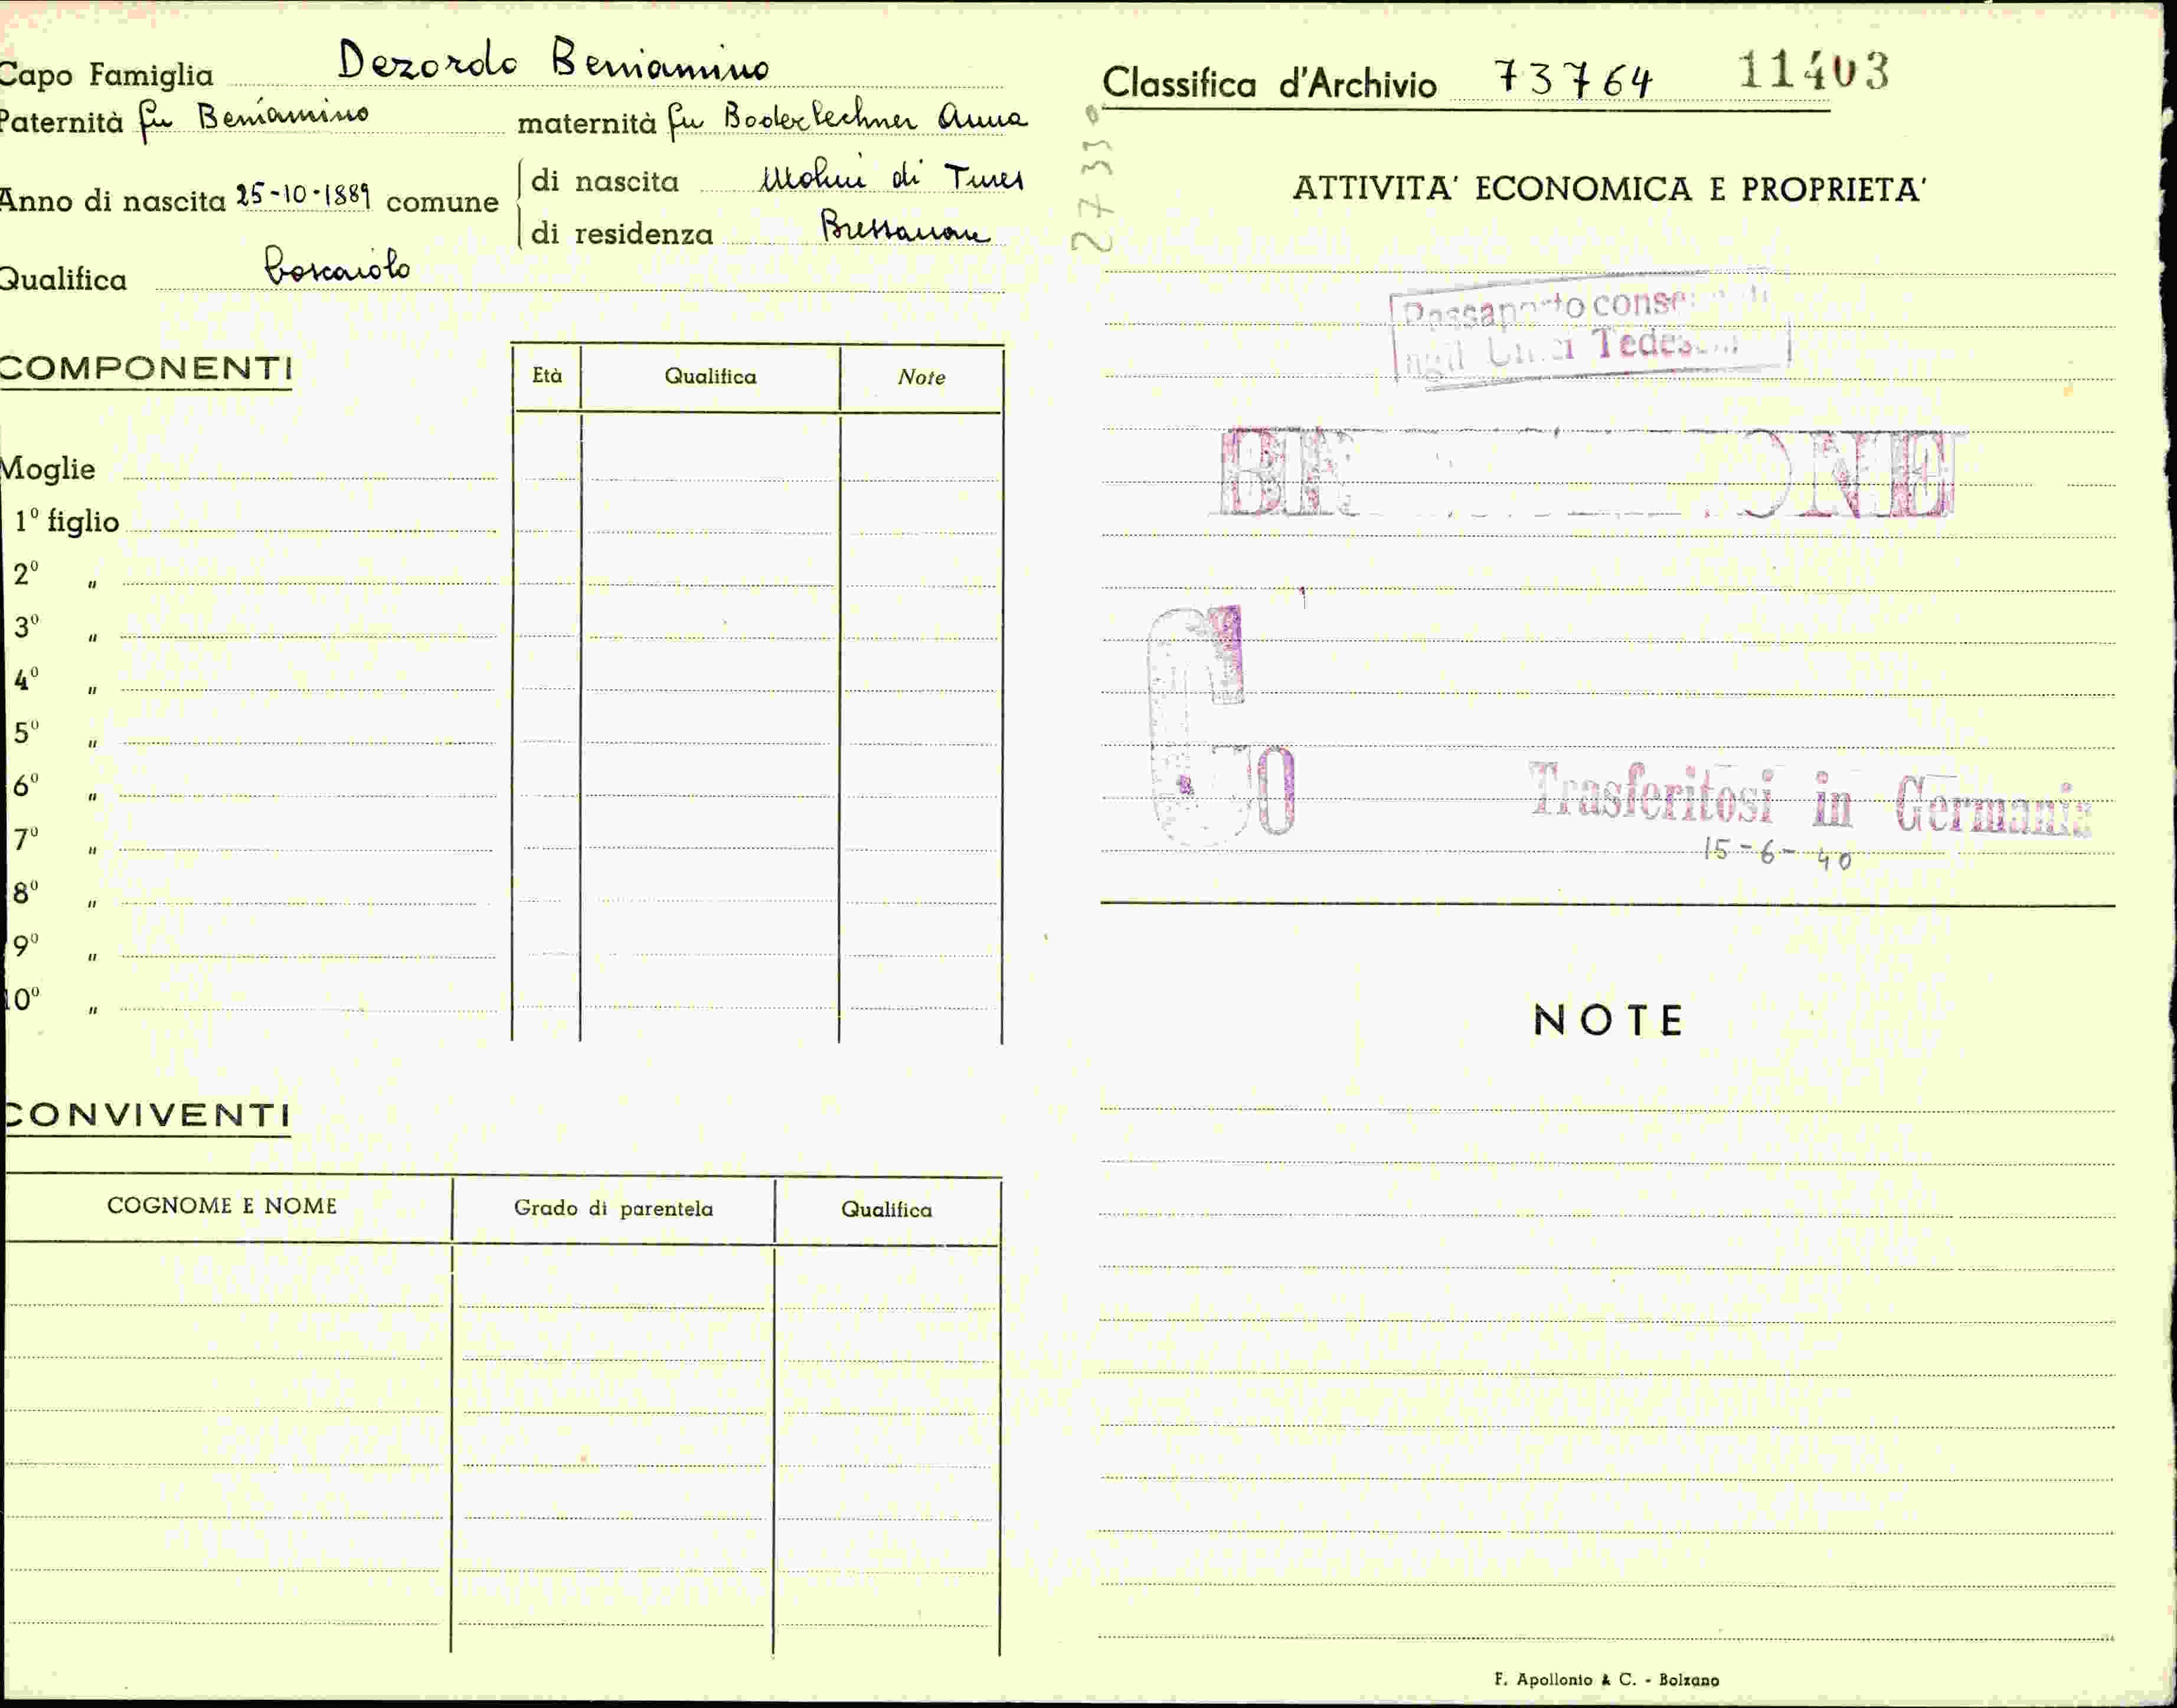 Capo Famiglia Dezordo Beniamino
Paternità fu Beniamino maternità fu Anna
Anno di nascita 25-10-1889 comune
di nascita Molini di Tures
di residenza Bressanone
Qualifica boscaiolo
COMPONENTI
Età Qualifica Note
Moglie
1º figlio
2º "
3º "
4º "
5º "
6º "
7º "
8º "
9º "
10º "
CONVIVENTI
COGNOME E NOME Grado di parentela Qualifica
Classifica d'Archivio 73764 11403
27330
ATTIVITA' ECONOMICA E PROPRIETA'
Trasferitosi in Germania
15-6-40
NOTE
F. Apollonio & C. - Bolzano